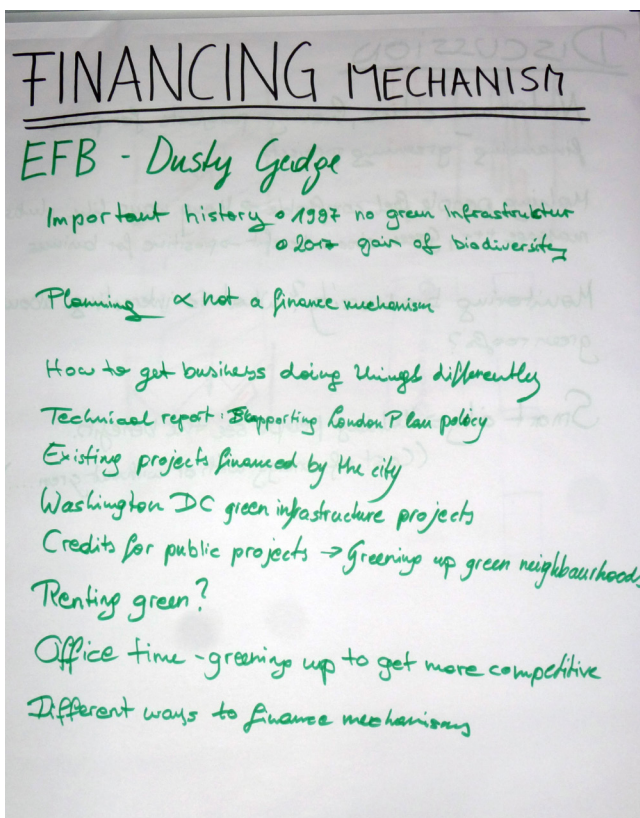 FINANCING MECHANISM
EFB - Dusty Gedge
Important history • 1997 no green infrastruktur
• 2017 gain of biodiversity
Planning ∝ not a finance mechanism
How to get business doing things differently
Technical report: Supporting London Plan policy
Existing projects financed by the city
Washington DC green infrastructure projects
Credits for public projects → Greening up green neighbourhoods
Renting green?
Office time - greening up to get more competitive
Different ways to finance mechanisms